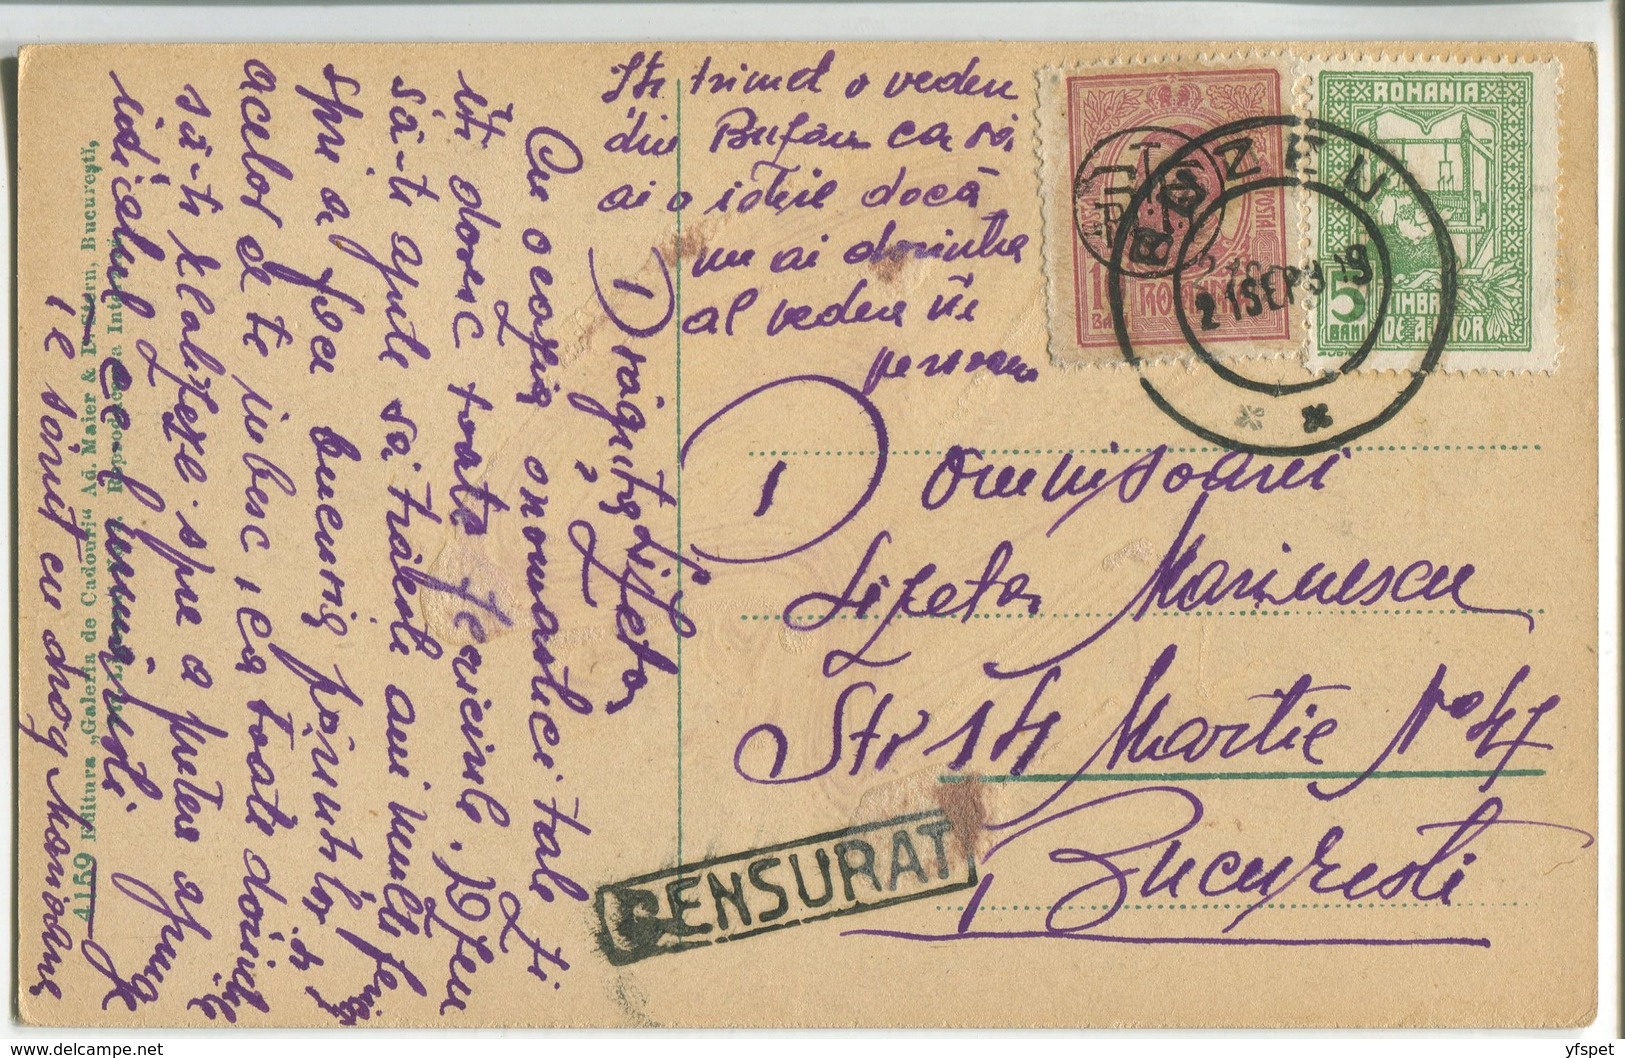 Îți trimet o vedere
din Buzău ca să
ai o idee dacă
nu ai dorința
al vedea în
persoană
Dragută Lizeta,
Cu ocazia onomasticei tale îți
doresc toate fericirile. Dzeu
să-ți ajute să trăiești ani mulți
spre a face bucuria părinților și
acelor ce te iubesc iar toate dorințele
să-ți realizeze spre a putea ajunge
idealul ce urmărești
Te sărut cu drag Marioara
4159 Editura „Galeria de Cadouri" Ad. Maier & D. Stern, Bucureștĭ,
Reproducerea Interzisă
ROMANIA
BANI
ROMANIA
5
BANI
TIMBRU
DE AJUTOR
BUZEU
21 SEP 919
Domnișoarei
Lizeta Marinescu
Str 14 Martie No 47
București
CENSURAT
yfspet